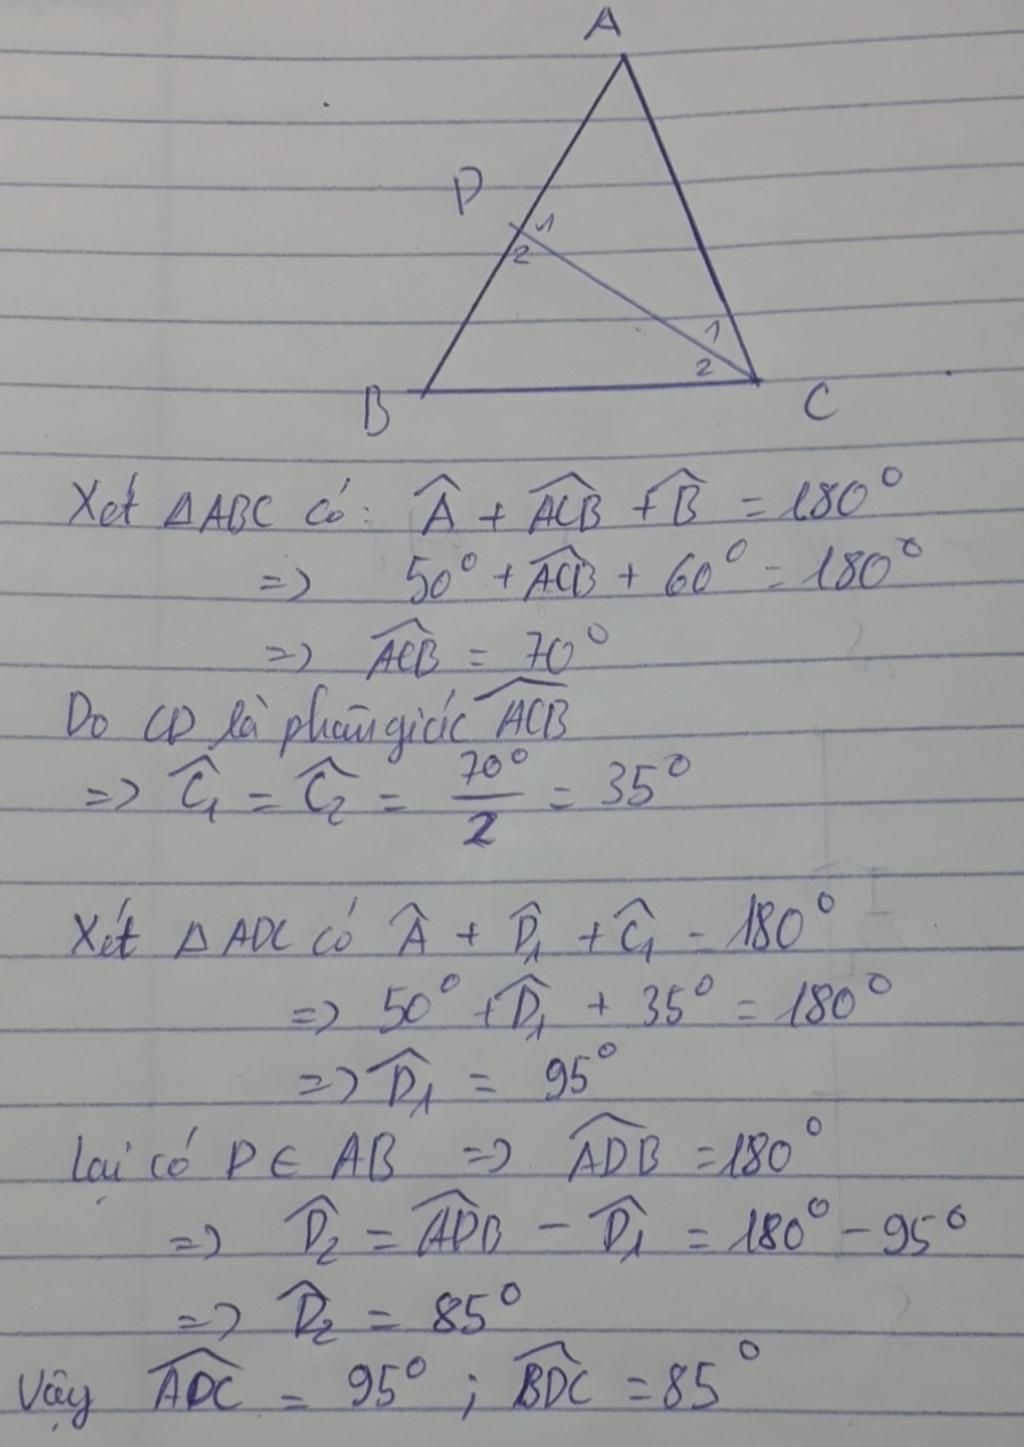 A
D
1
2
1
2
B
C
Xét △ABC có: Â + \widehat{ACB} + \widehat{B} = 180°
=> 50° + \widehat{ACB} + 60° = 180°
=> \widehat{ACB} = 70°
Do CD là phân giác \widehat{ACB}
=> \widehat{C}₁ = \widehat{C}₂ = 70°/2 = 35°
Xét △ADC có Â + \widehat{D}₁ + \widehat{C}₁ = 180°
=> 50° + \widehat{D}₁ + 35° = 180°
=> \widehat{D}₁ = 95°
Lại có D ∈ AB => \widehat{ADB} = 180°
=> \widehat{D}₂ = \widehat{ADB} - \widehat{D}₁ = 180° - 95°
=> \widehat{D}₂ = 85°
Vậy \widehat{ADC} = 95° ; \widehat{BDC} = 85°